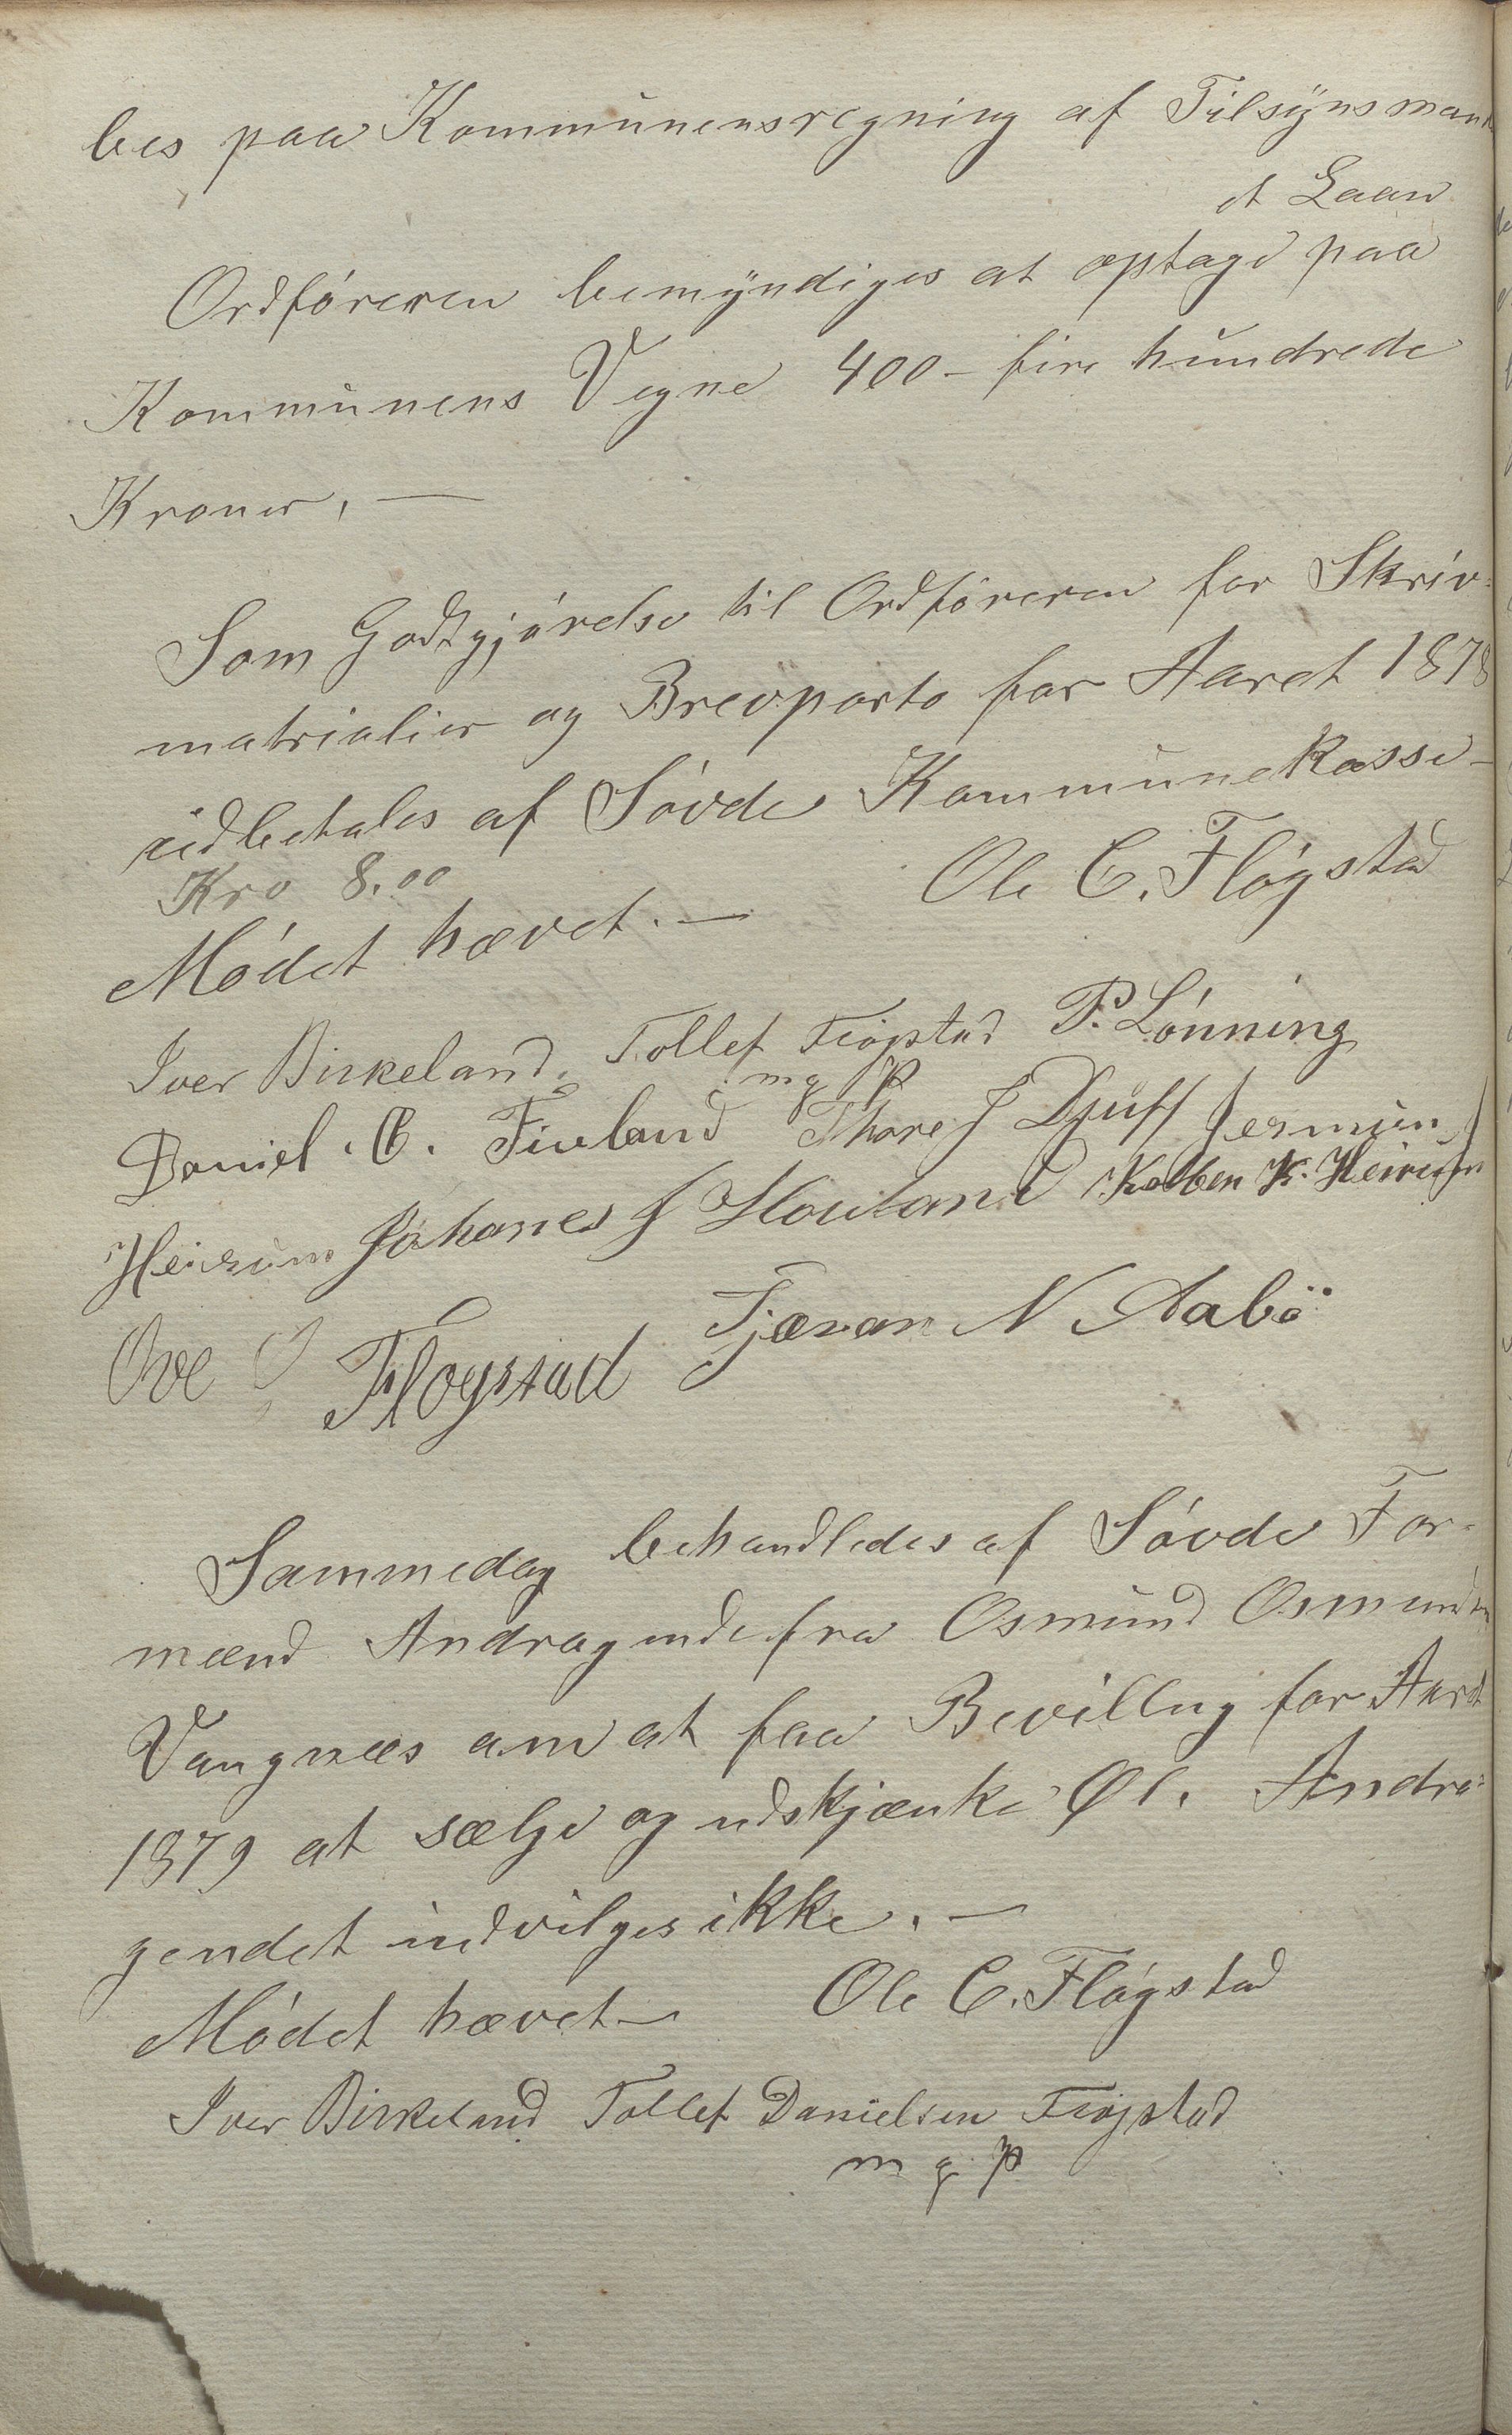 bes paa Kommunensregning af Tilsynsmand
et Laan
Ordføreren bemyndiges at optage paa
Kommunens Vegne 400 - fire hundrede
Kroner. —
Som Godtgjørelse til Ordføreren for Skriv-
matrialier og Brevporto for Aaret 1878
udbetales af Søvde Kommunekasse -
Kro 8.00
Mødet hævet. — Ole C. Fløgstad
Iver Birkeland. Tollef Fløgstad P. Lønning
m g P
Daniel. C. Fivland Thore J Djuff Jermun
Heirum Johanes J Hovland Kolben K. Heirum
Ove Fløgstad Tjæran N Aabø
Sammedag behandledes af Søvde For-
mænd Andragende fra Osmund Osmunds
Vangnæs om at faa Bevillug for Aaret
1879 at sælge og udskjænke Øl. Andra-
gendet indvilges ikke. —
Mødet hævet — Ole C. Fløgstad
Iver Birkeland Tollef Danielsen Fløgstad
m g P